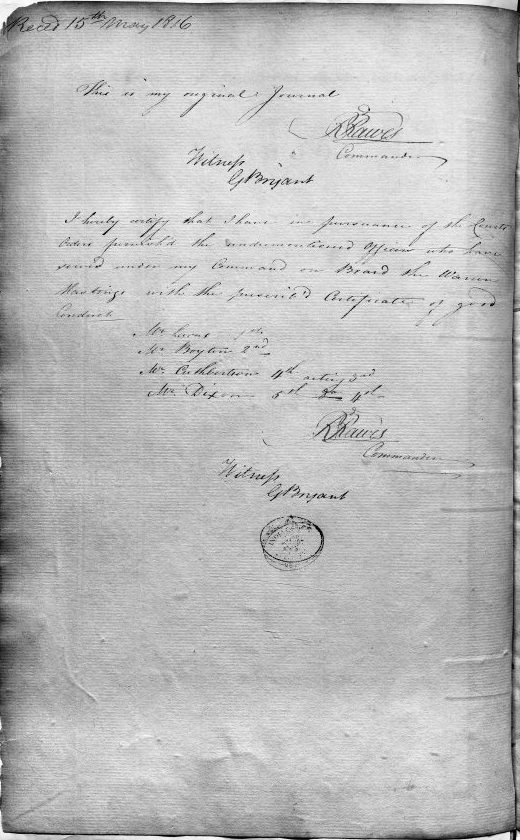 Reced 15th May 1816
This is my original Journal
RRawes
Commander
Witness
G Bryant
I hereby certify that I have in pursuance of the Courts
Orders furnish'd the undermentioned Officers who have
served under my Command on Board the Warren
Hastings with the prescrib'd Certificate of good
Conduct
Mr 1st
Mr Boyton 2nd
Mr Cuthbertson 4th acting 3rd
Mr Dixon 5th do 4th
RRawes
Commander
Witness
G Bryant